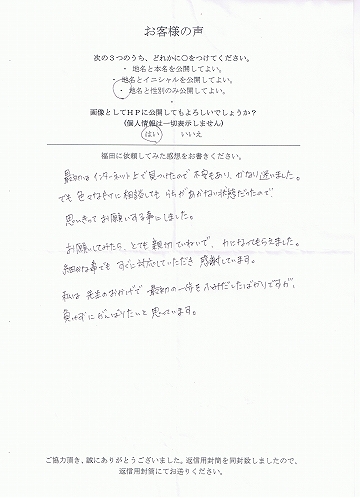 お客様の声
次の3つのうち、どれかに○をつけてください。
・ 地名と本名を公開してよい。
・ 地名とイニシャルを公開してよい。
・ 地名と性別のみ公開してよい。
画像としてHPに公開してもよろしいでしょうか?
(個人情報は一切表示しません)
はい いいえ
福田に依頼してみた感想をお書きください。
最初はインターネット上で見つけたので不安もあり、かなり迷いました。
でも色々な所に相談しても らちがあかない状態だったので
思いきってお願いする事にしました。
お願いしてみたら、とても親切でていねいで、力になってもらえました。
細かな事でも すぐに対応していただき 感謝しています。
私は 先生のおかげで 最初の一歩をふみだしたばかりですが、
負けずにがんばりたいと思っています。
ご協力頂き、誠にありがとうございました。返信用封筒を同封致しましたので、
返信用封筒にてお送りください。